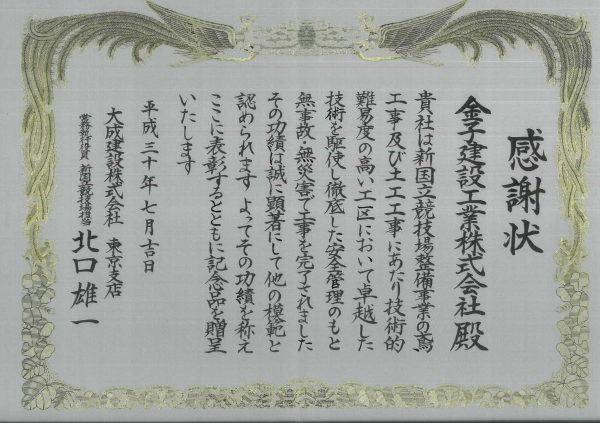 感謝状
金子建設工業株式会社 殿
貴社は新国立競技場整備事業の鳶
工事及び土工工事にあたり技術的
難易度の高い工区において卓越した
技術を駆使し徹底した安全管理のもと
無事故・無災害で工事を完了されました
その功績は誠に顕著にして他の模範と
認められます よってその功績を称え
ここに表彰するとともに記念品を贈呈
いたします
平成三十年七月吉日
大成建設株式会社 東京支店
常務執行役員 新国立競技場担当
北口雄一